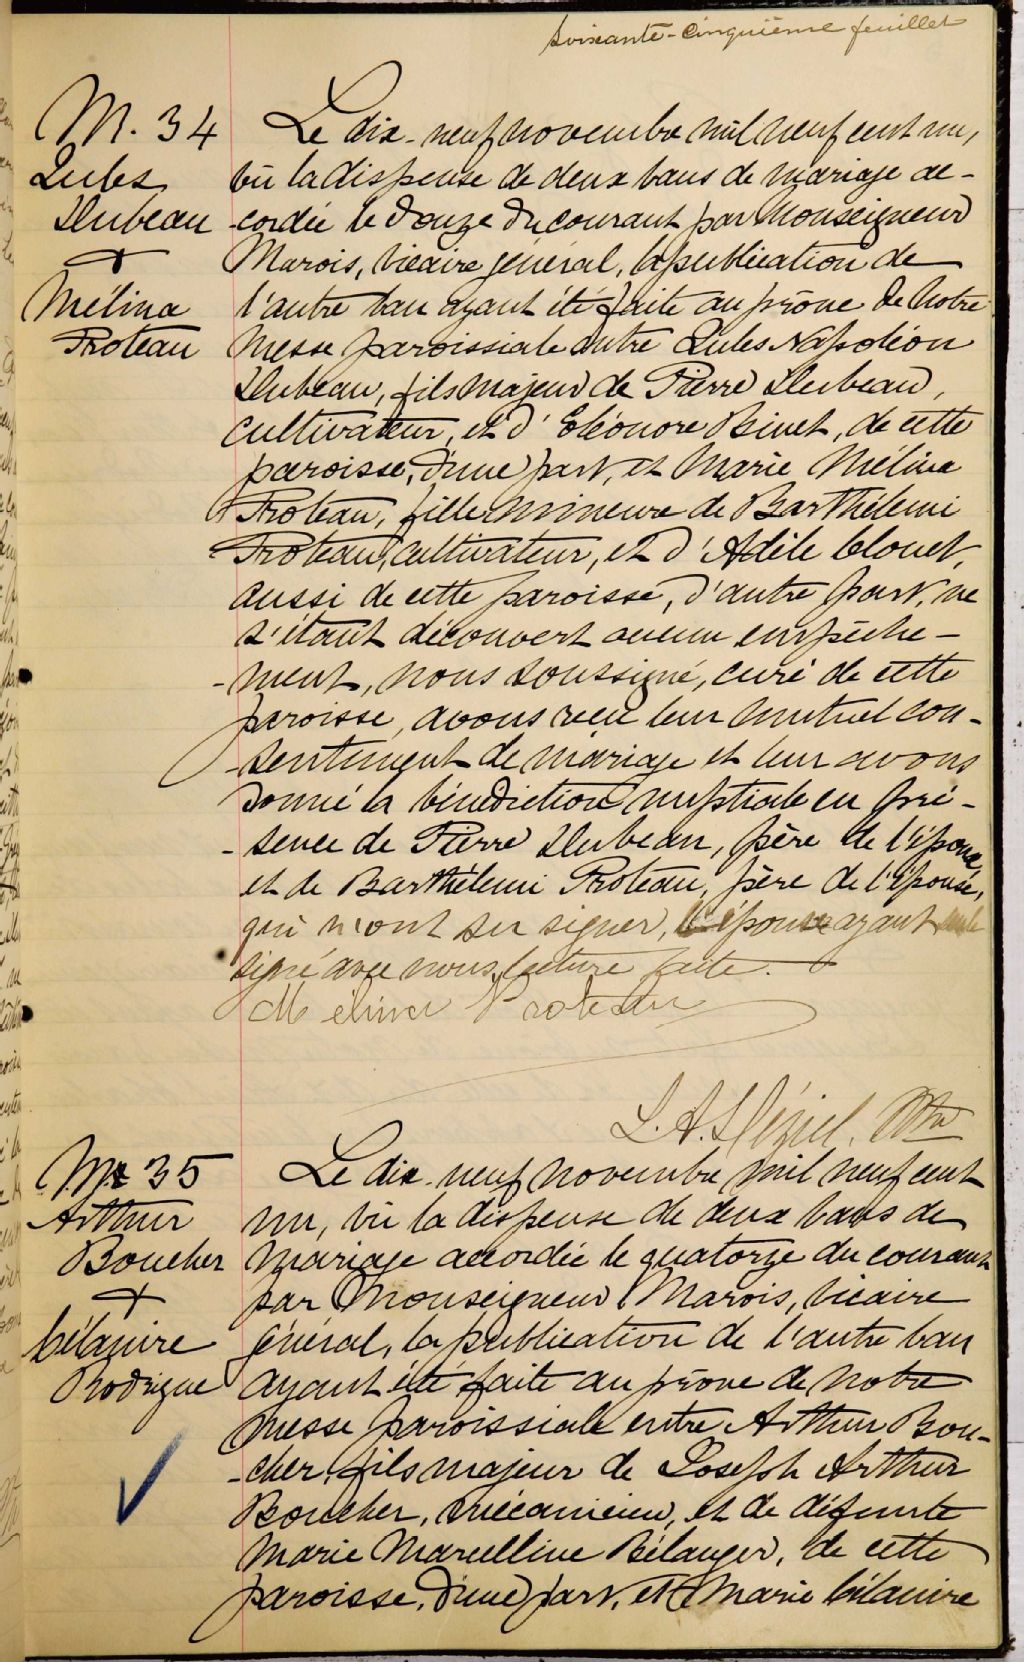 Soixante-cinquième feuillet
M. 34
Jules
Dubeau
+
Mélina
Proteau
Le dix-neuf novembre mil neuf cent un,
vu la dispense de deux bans de mariage ac-
-cordée le douze du courant par Monseigneur
Marois, vicaire général, la publication de
l'autre ban ayant été faite au prône de notre
messe paroissiale entre Jules Napoléon
Dubeau, fils majeur de Pierre Dubeau,
cultivateur, et d'Eléonore Binet, de cette
paroisse, d'une part, et Marie Mélina
Proteau, fille mineure de Barthélemi
Proteau, cultivateur, et d'Adèle Clouet,
aussi de cette paroisse, d'autre part, ne
s'étant découvert aucun empêche-
-ment, nous soussigné, curé de cette
paroisse, avons reçu leur mutuel con-
-sentiment de mariage et leur avons
donné la bénédiction nuptiale en pré-
-sence de Pierre Dubeau, père de l'époux,
et de Barthélemi Proteau, père de l'épouse,
qui n'ont su signer, l'épouse ayant seule
signé avec nous, lecture faite.
Mélina Proteau
L. A. Déziel, Ptre
M. 35
Arthur
Boucher
+
Célanire
Rodrigue
Le dix-neuf novembre mil neuf cent
un, vu la dispense de deux bans de
mariage accordée le quatorze du courant
par Monseigneur Marois, vicaire
général, la publication de l'autre ban
ayant été faite au prône de notre
messe paroissiale entre Arthur Bou-
-cher, fils majeur de Joseph Arthur
Boucher, mécanicien, et de défunte
Marie Marcelline Bélanger, de cette
paroisse, d'une part, et Marie Célanire